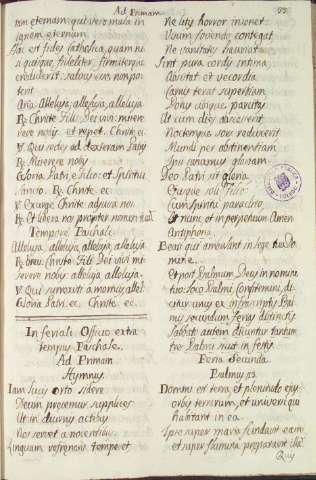 Ad Primam
tam eternam, qui vero mala in
ignem eternum.
Hæc est fides catholica, quam ni
si quisque fideliter, firmiterque
crediderit, salvus esse non po
terit.
Ana. Alleluja, alleluja, alleluja
R. Christe Fili Dei vivi misere
rere nobis et repet. Christe ec
V. Qui sedes ad dexteram Patris
R. Miserere nobis
Gloria Patri, et Filio et Spiritui
Sancto. R. Christe ec
V. Exurge Christe adjuva nos
R. Et libera nos propter nomen tuum
Tempore Paschale.
Alleluja, alleluja, alleluja, alleluja
R. breve Christe Fili Dei vivi mi
serere nobis alleluja, alleluja.
V. Qui surrexisti a mortuis, allel
Gloria Patri. ec Christe ec.
In feriali Officio extra
tempus Paschale.
Ad Primam
Hymnus
Iam lucis orto sidere
Deum precemur supplices
Ut in diurnis actibus
Nos servet a nocentibus
Linguam refrenans temperet
Ne litis horror insonet
Visum fovendo contegat
Ne vanitates hauriat.
Sint pura cordis intima
Absistat et vecordia
Carnis terat superbiam
Potus cibique parcitas
Ut cum dies abscesserit
Noctemque sors reduxerit
Mundi per abstinentiam
Ipsi canamus gloriam
Deo Patri sit gloria
Ejusque soli Filio
Cum Spiritu paraclito
Et nunc et in perpetuum Amen
Antiphona
Beati qui ambulant in lege tua Do
mine.
Et post Psalmum Deus in nomine
tuo loco Psalmi Confitemini, di
citur unus ex infrascriptis Psal
mis secundum ferias distinctis
Sabbato autem dicuntur tantum
tres Psalmi sicut in festis
Feria Secunda
Psalmus 23
Domini est terra, et plenitudo ejus
orbis terrarum, et universi qui
habitant in eo.
Ipse super maria fundavit eam
et super flumina preparavit eam
Quis